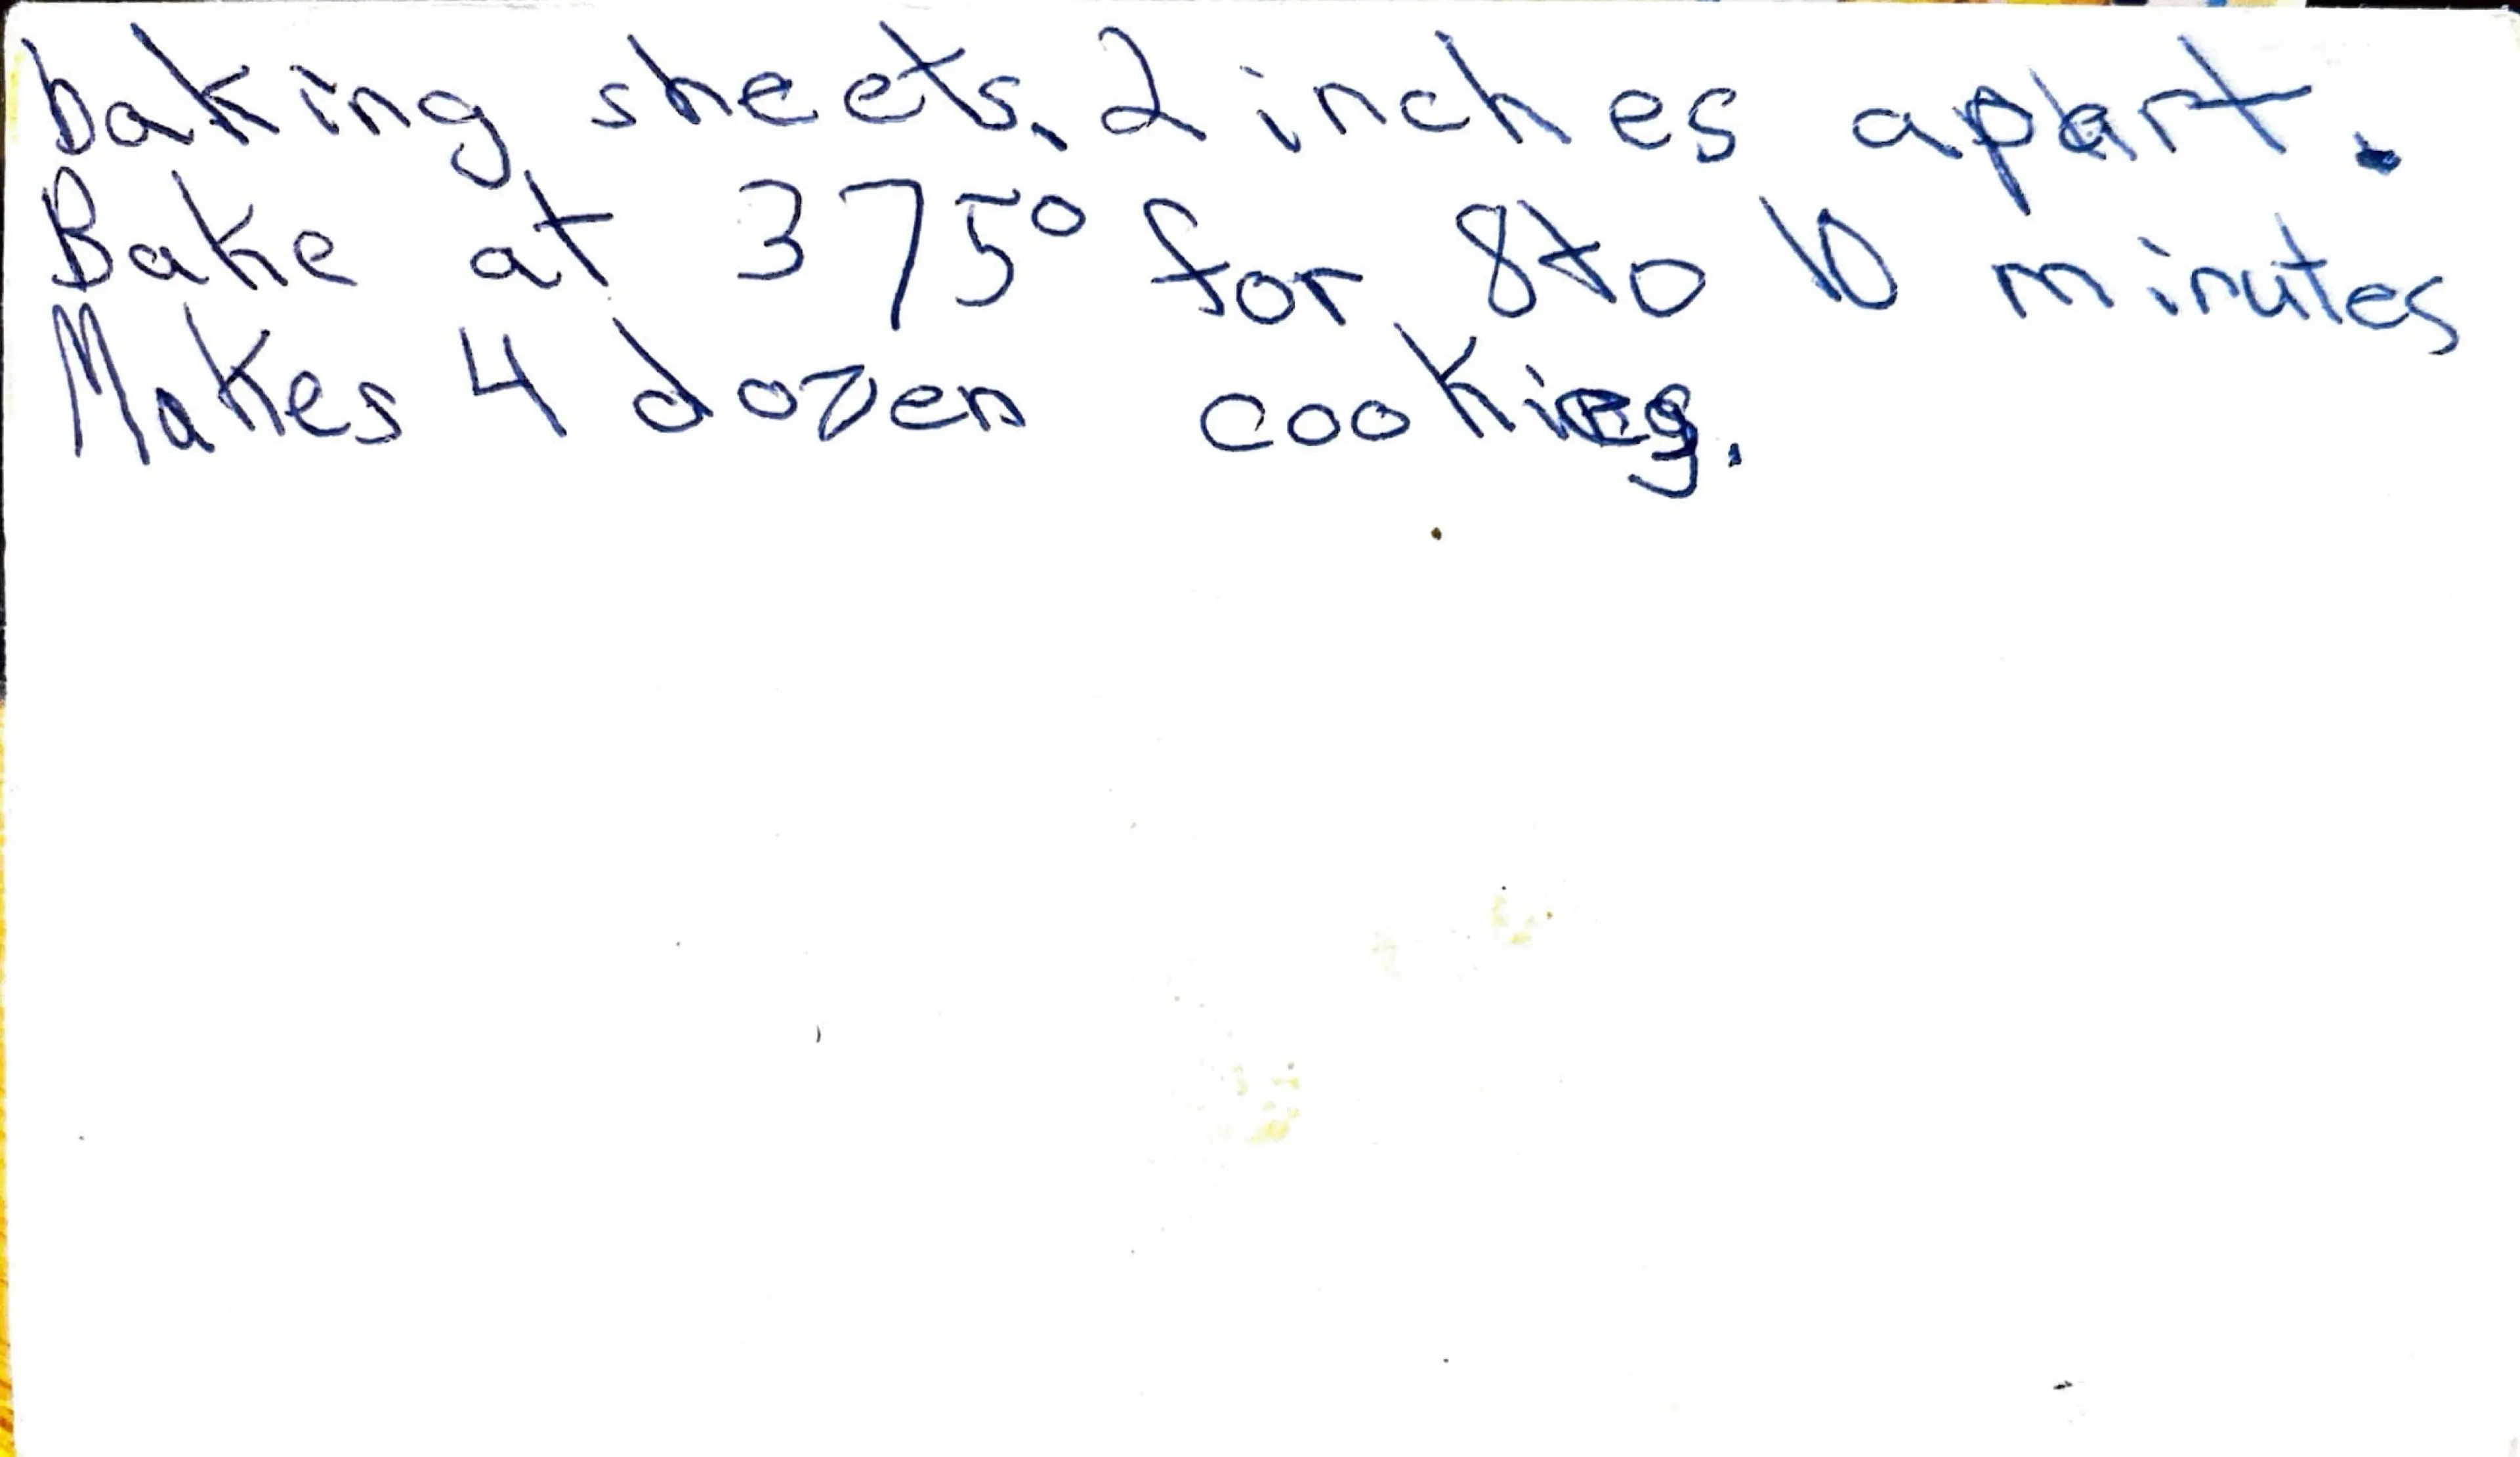 baking sheets, 2 inches apart.
Bake at 375° for 8 to 10 minutes
Makes 4 dozen cookies.